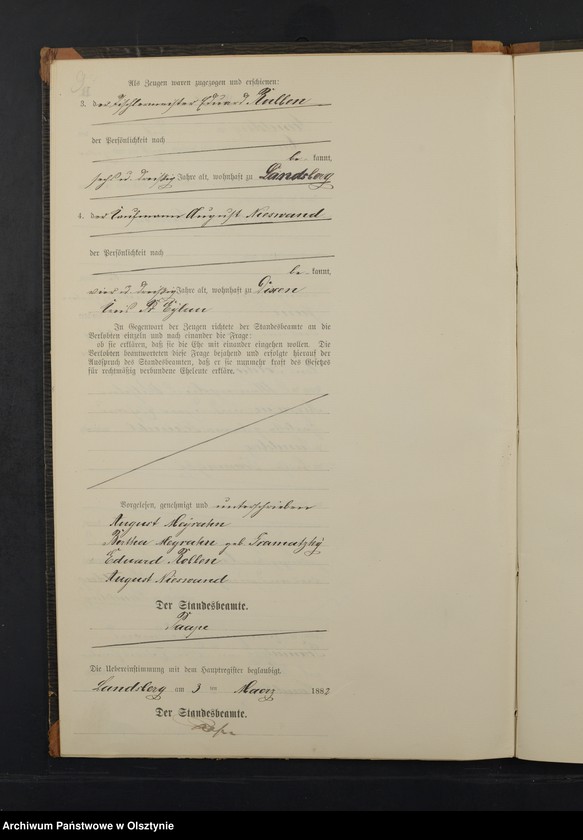 Als Zeugen waren zugezogen und erschienen:
3. der Tischlermeister Eduard Kolben
der Persönlichkeit nach
be kannt,
sechs u. dreißig Jahre alt, wohnhaft zu Landsberg
4. der Kaufmann August Nieswand
der Persönlichkeit nach
be kannt,
vier u. dreißig Jahre alt, wohnhaft zu
Kreis Pr Eylau
In Gegenwart der Zeugen richtete der Standesbeamte an die
Verlobten einzeln und nach einander die Frage:
ob sie erklären, daß sie die Ehe mit einander eingehen wollen. Die
Verlobten beantworteten diese Frage bejahend und erfolgte hierauf der
Ausspruch des Standesbeamten, daß er sie nunmehr kraft des Gesetzes
für rechtmäßig verbundene Eheleute erkläre.
Vorgelesen, genehmigt und unterschrieben
August
geb.
Eduard Kolben
August Nieswand
Der Standesbeamte.
Die Uebereinstimmung mit dem Hauptregister beglaubigt.
Landsberg am 3 ten Maerz 1882
Der Standesbeamte.
Archiwum Państwowe w Olsztynie